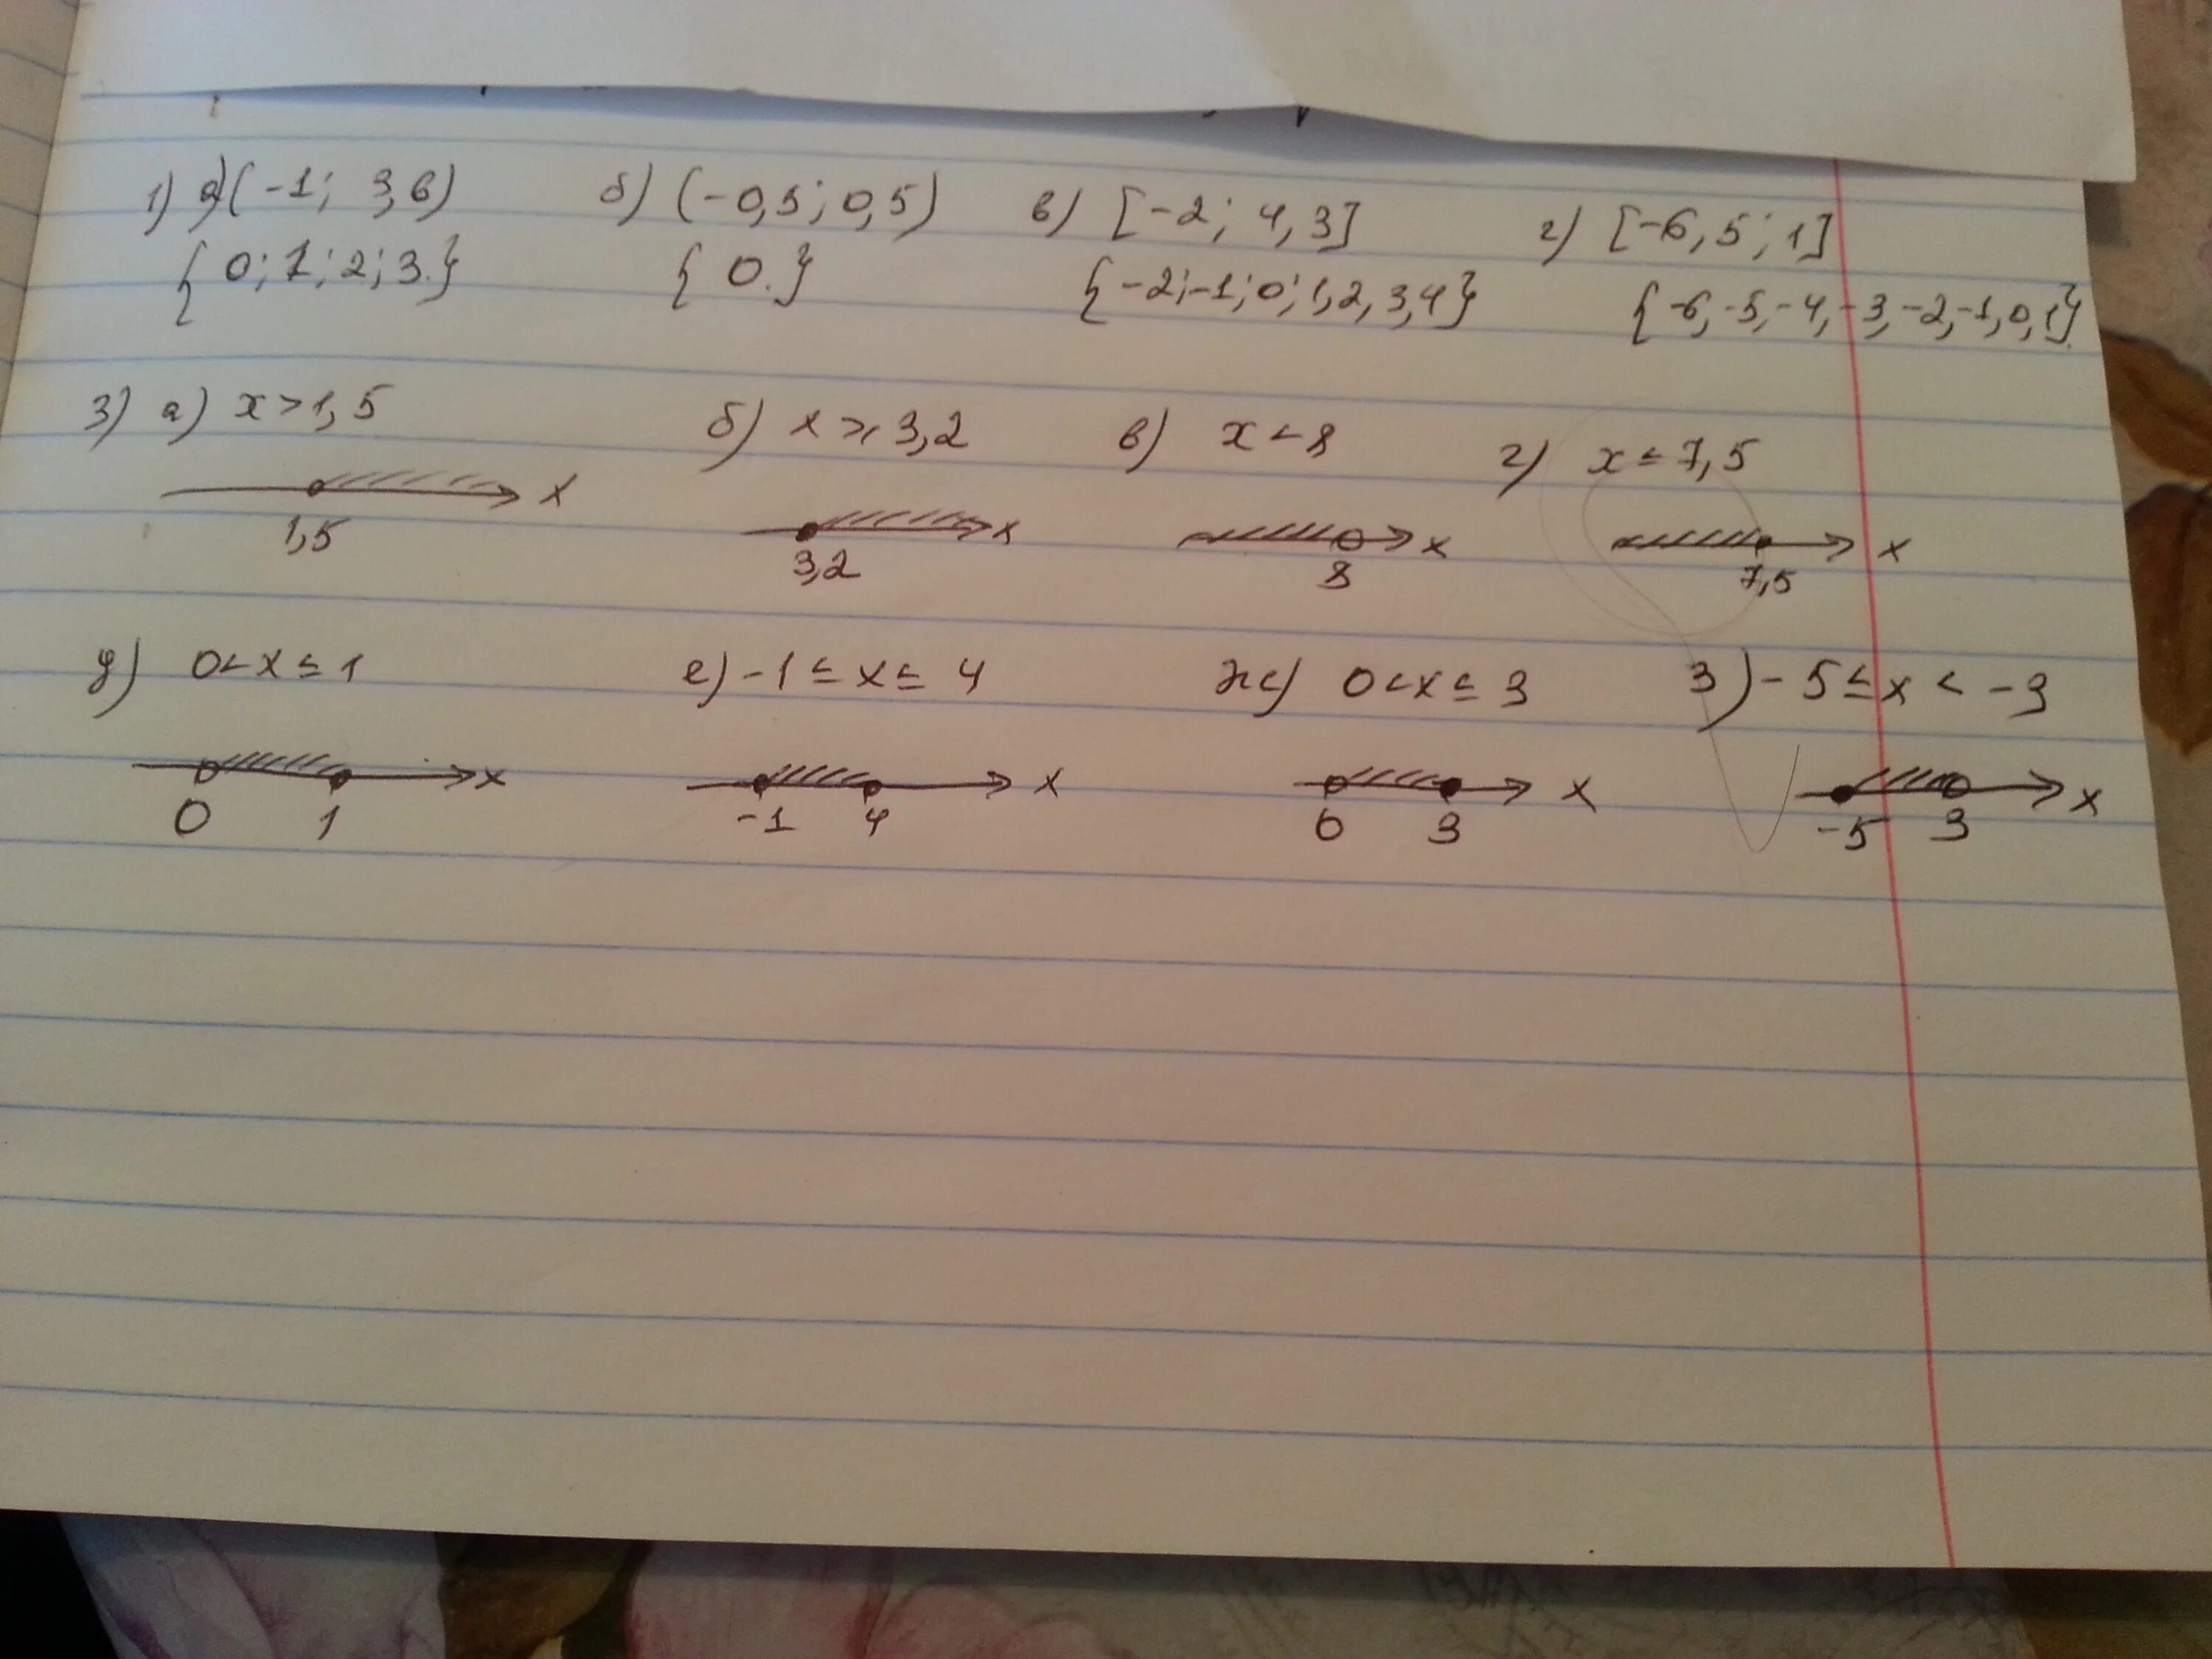 1) а) (-1; 3,6) б) (-0,5; 0,5) в) [-2; 4,3] г) [-6,5; 1]
{0; 1; 2; 3.} {0.} {-2; -1; 0; 1, 2, 3, 4} {-6, -5, -4, -3, -2, -1, 0, 1}
3) а) x > 1,5 б) x ⩾ 3,2 в) x < 8 г) x ≤ 7,5
x x x x
1,5 3,2 8 7,5
д) 0 < x ≤ 1 е) -1 ≤ x ≤ 4 ж) 0 < x ≤ 3 з) -5 ≤ x < -3
x x x x
0 1 -1 4 0 3 -5 3